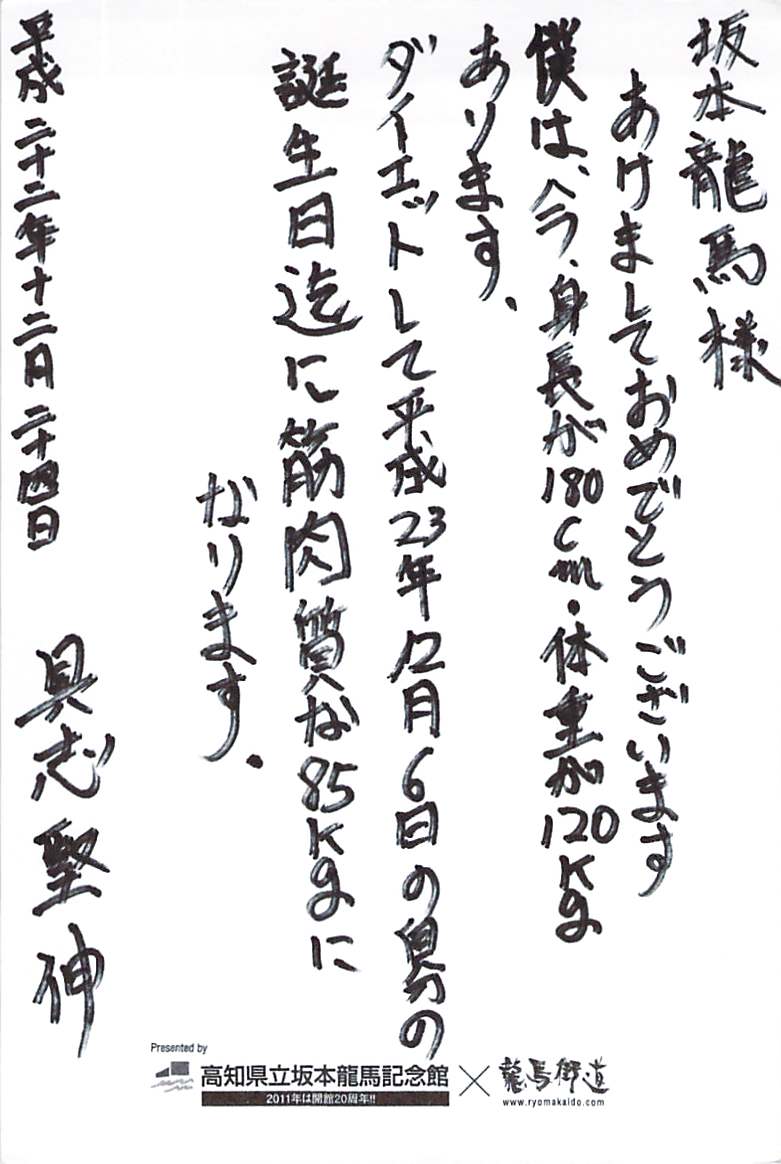 坂本龍馬様
あけましておめでとうございます
僕は、今、身長が180cm・体重が120kg
あります。
ダイエットして平成23年12月6日の自分の
誕生日迄に筋肉質な85kgに
なります。
平成二十二年十二月二十四日
具志堅伸
Presented by
高知県立坂本龍馬記念館
2011年は開館20周年!!
×
龍馬街道
www.ryomakaido.com